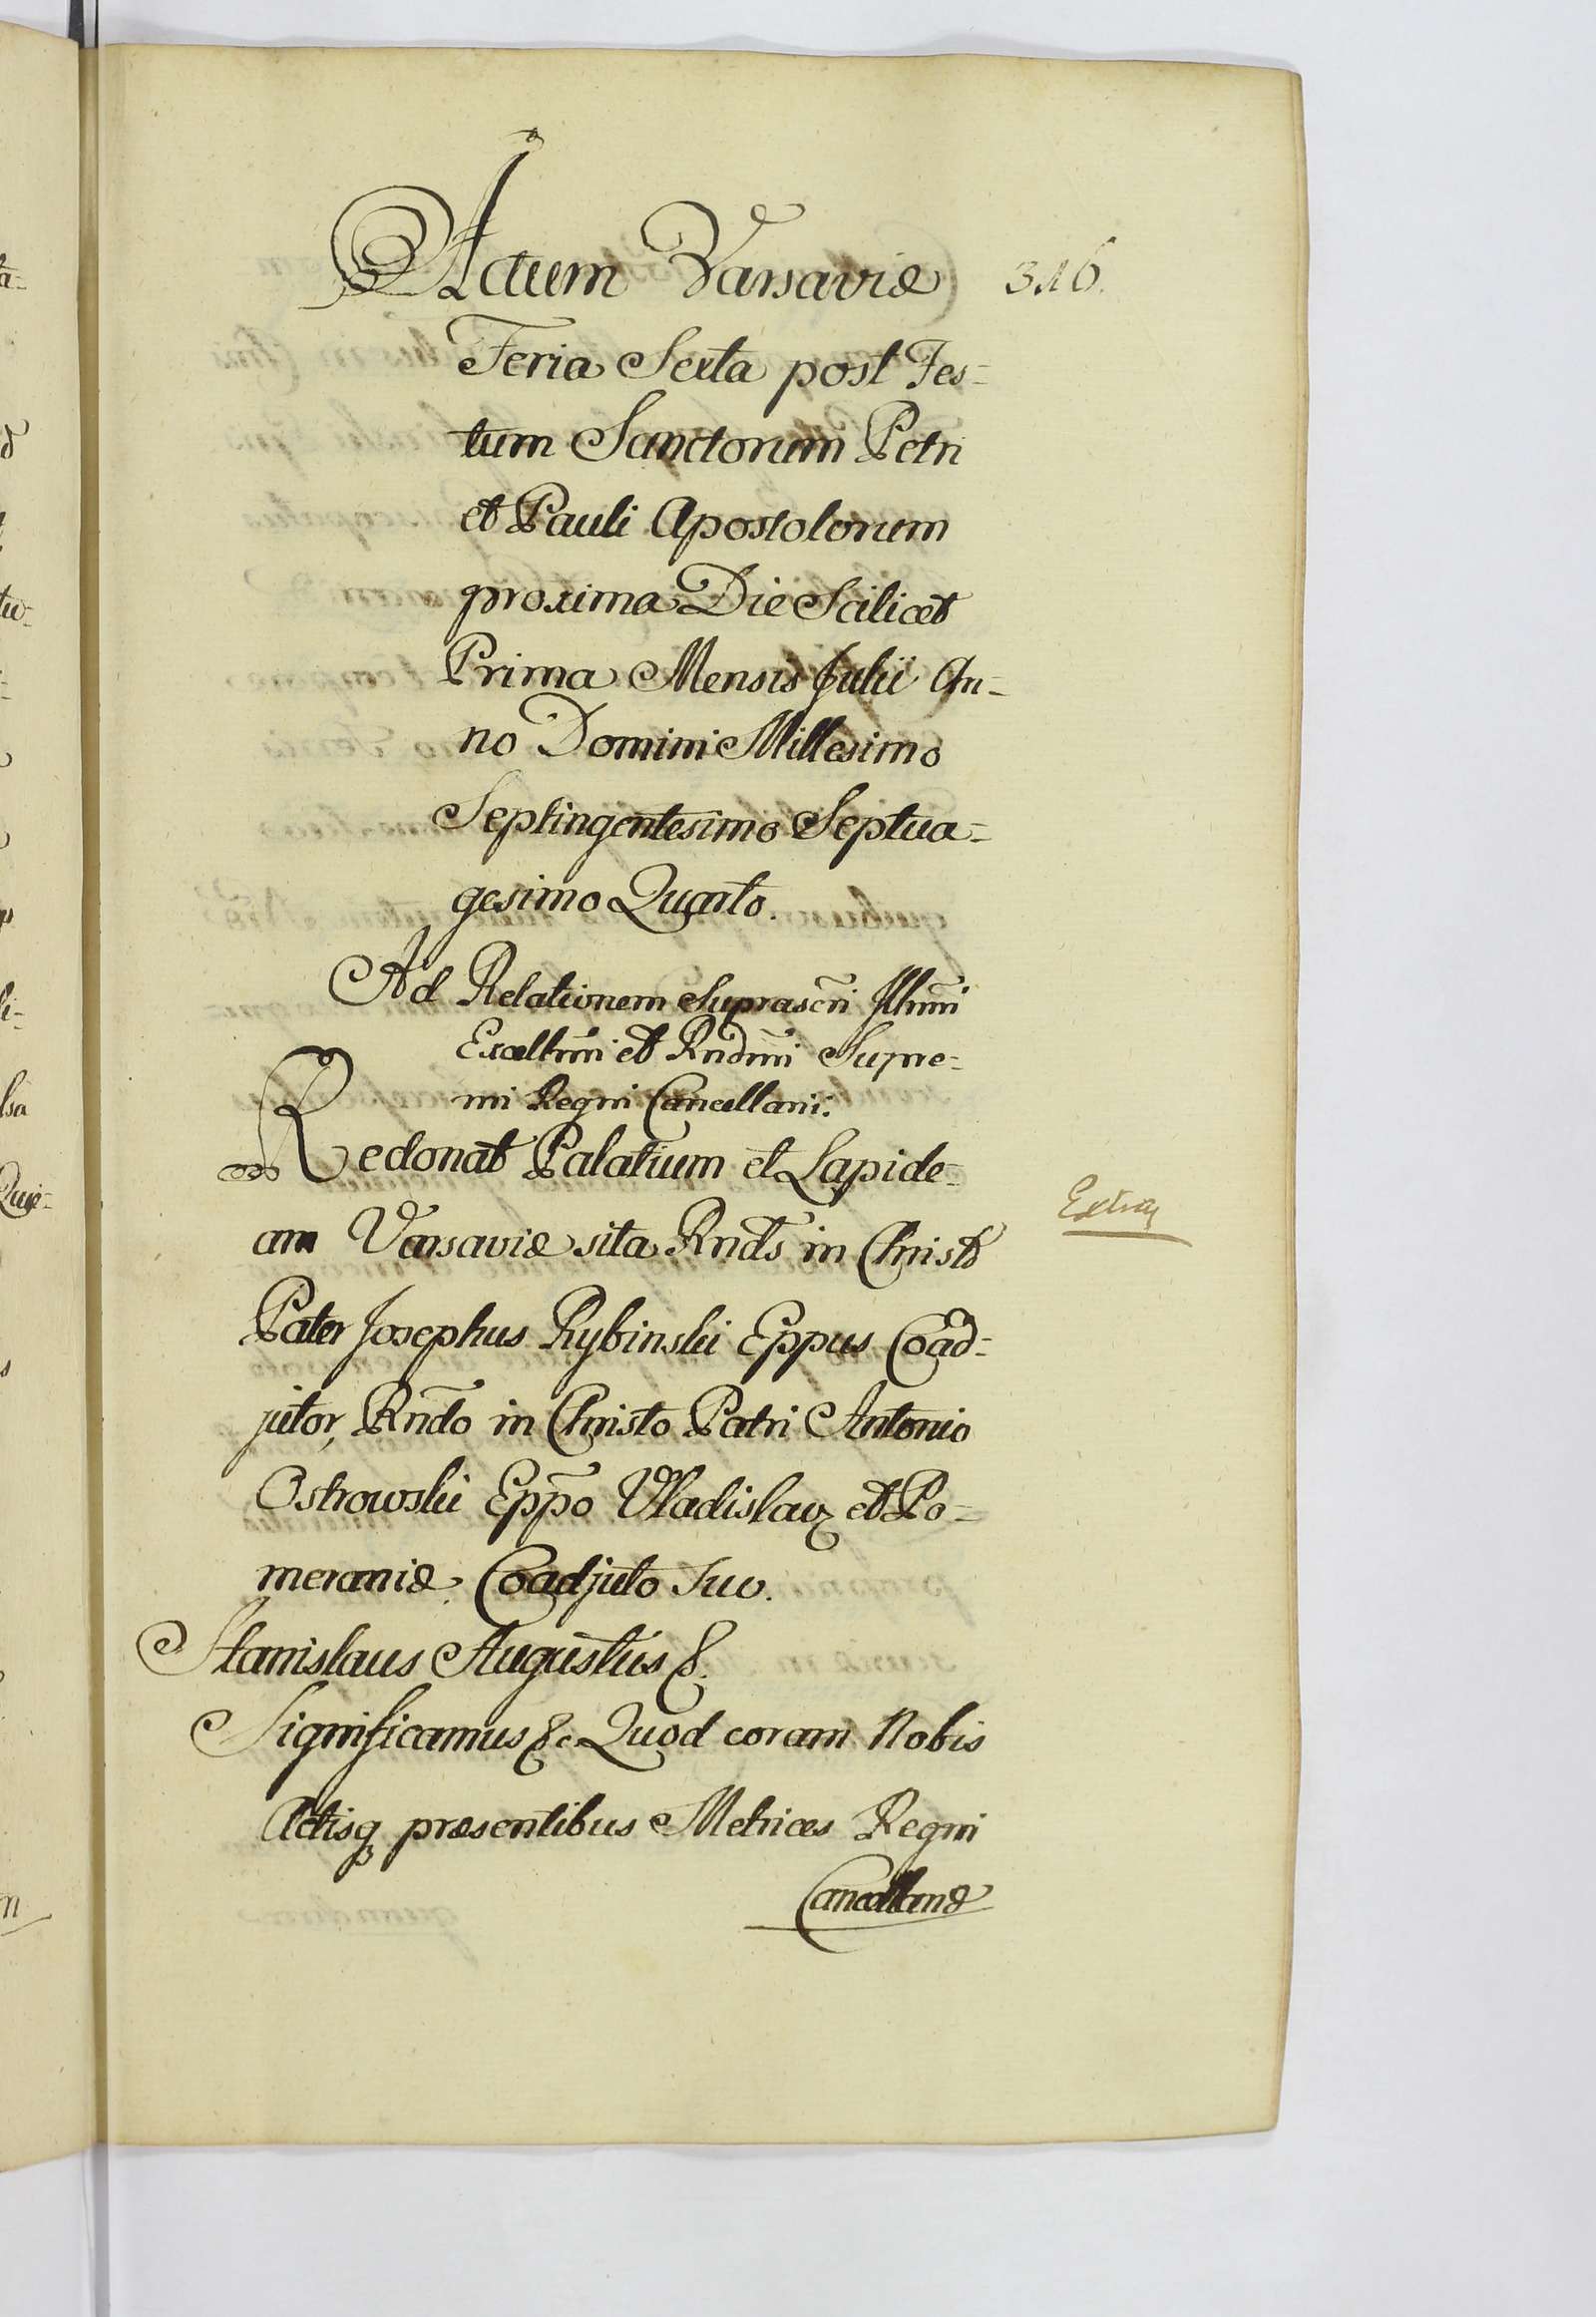 Actum Varsaviæ 316.
Feria Sexta post Fes=
tum Sanctorum Petri
et Pauli Apostolorum
proxima Die Scilicet
Prima Mensis Julii An=
no Domini Millesimo
Septingentesimo Septua=
gesimo Quarto.
Ad Relationem Suprascri Illmi
Excellmi et Rndmi Supre=
mi Regni Cancellarii.
Redonat Palatium et Lapide=
am Varsaviæ sita Rnds in Christo
Extra
Pater Josephus Rybinski Eppus Coad=
jutor, Rndo in Christo Patri Antonio
Ostrowski Eppo Vladislav et Po=
meraniæ. Coadjuto Suo.
Stanislaus Augustus &.
Significamus &c Quod coram Nobis
Actisq præsentibus Metrices Regni
Cancellariæ